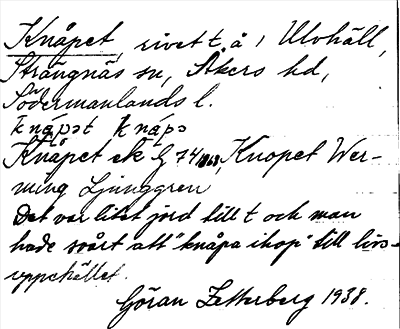 Knåpet, rivet t. å 1 Ulvhäll,
Strängnäs sn, Åkers hd,
Södermanlands l.
knápət knápə
Knåpet ek G 74 1868, Knopet Wer-
ming Ljunggren
Det var litet jord till t och man
hade svårt att "knåpa ihop" till livs-
uppehället.
Göran Zetterberg 1938.